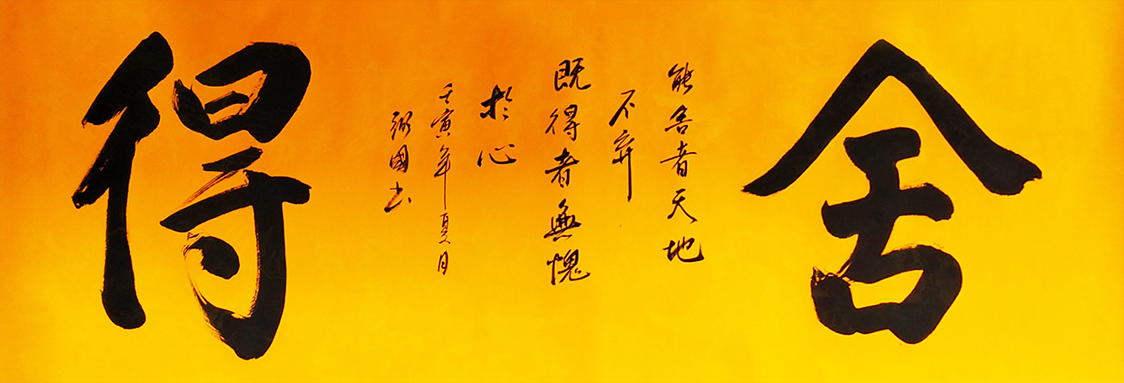 舍
能舍者天地
不弃
既得者無愧
於心
壬寅年夏月
弼國书
得